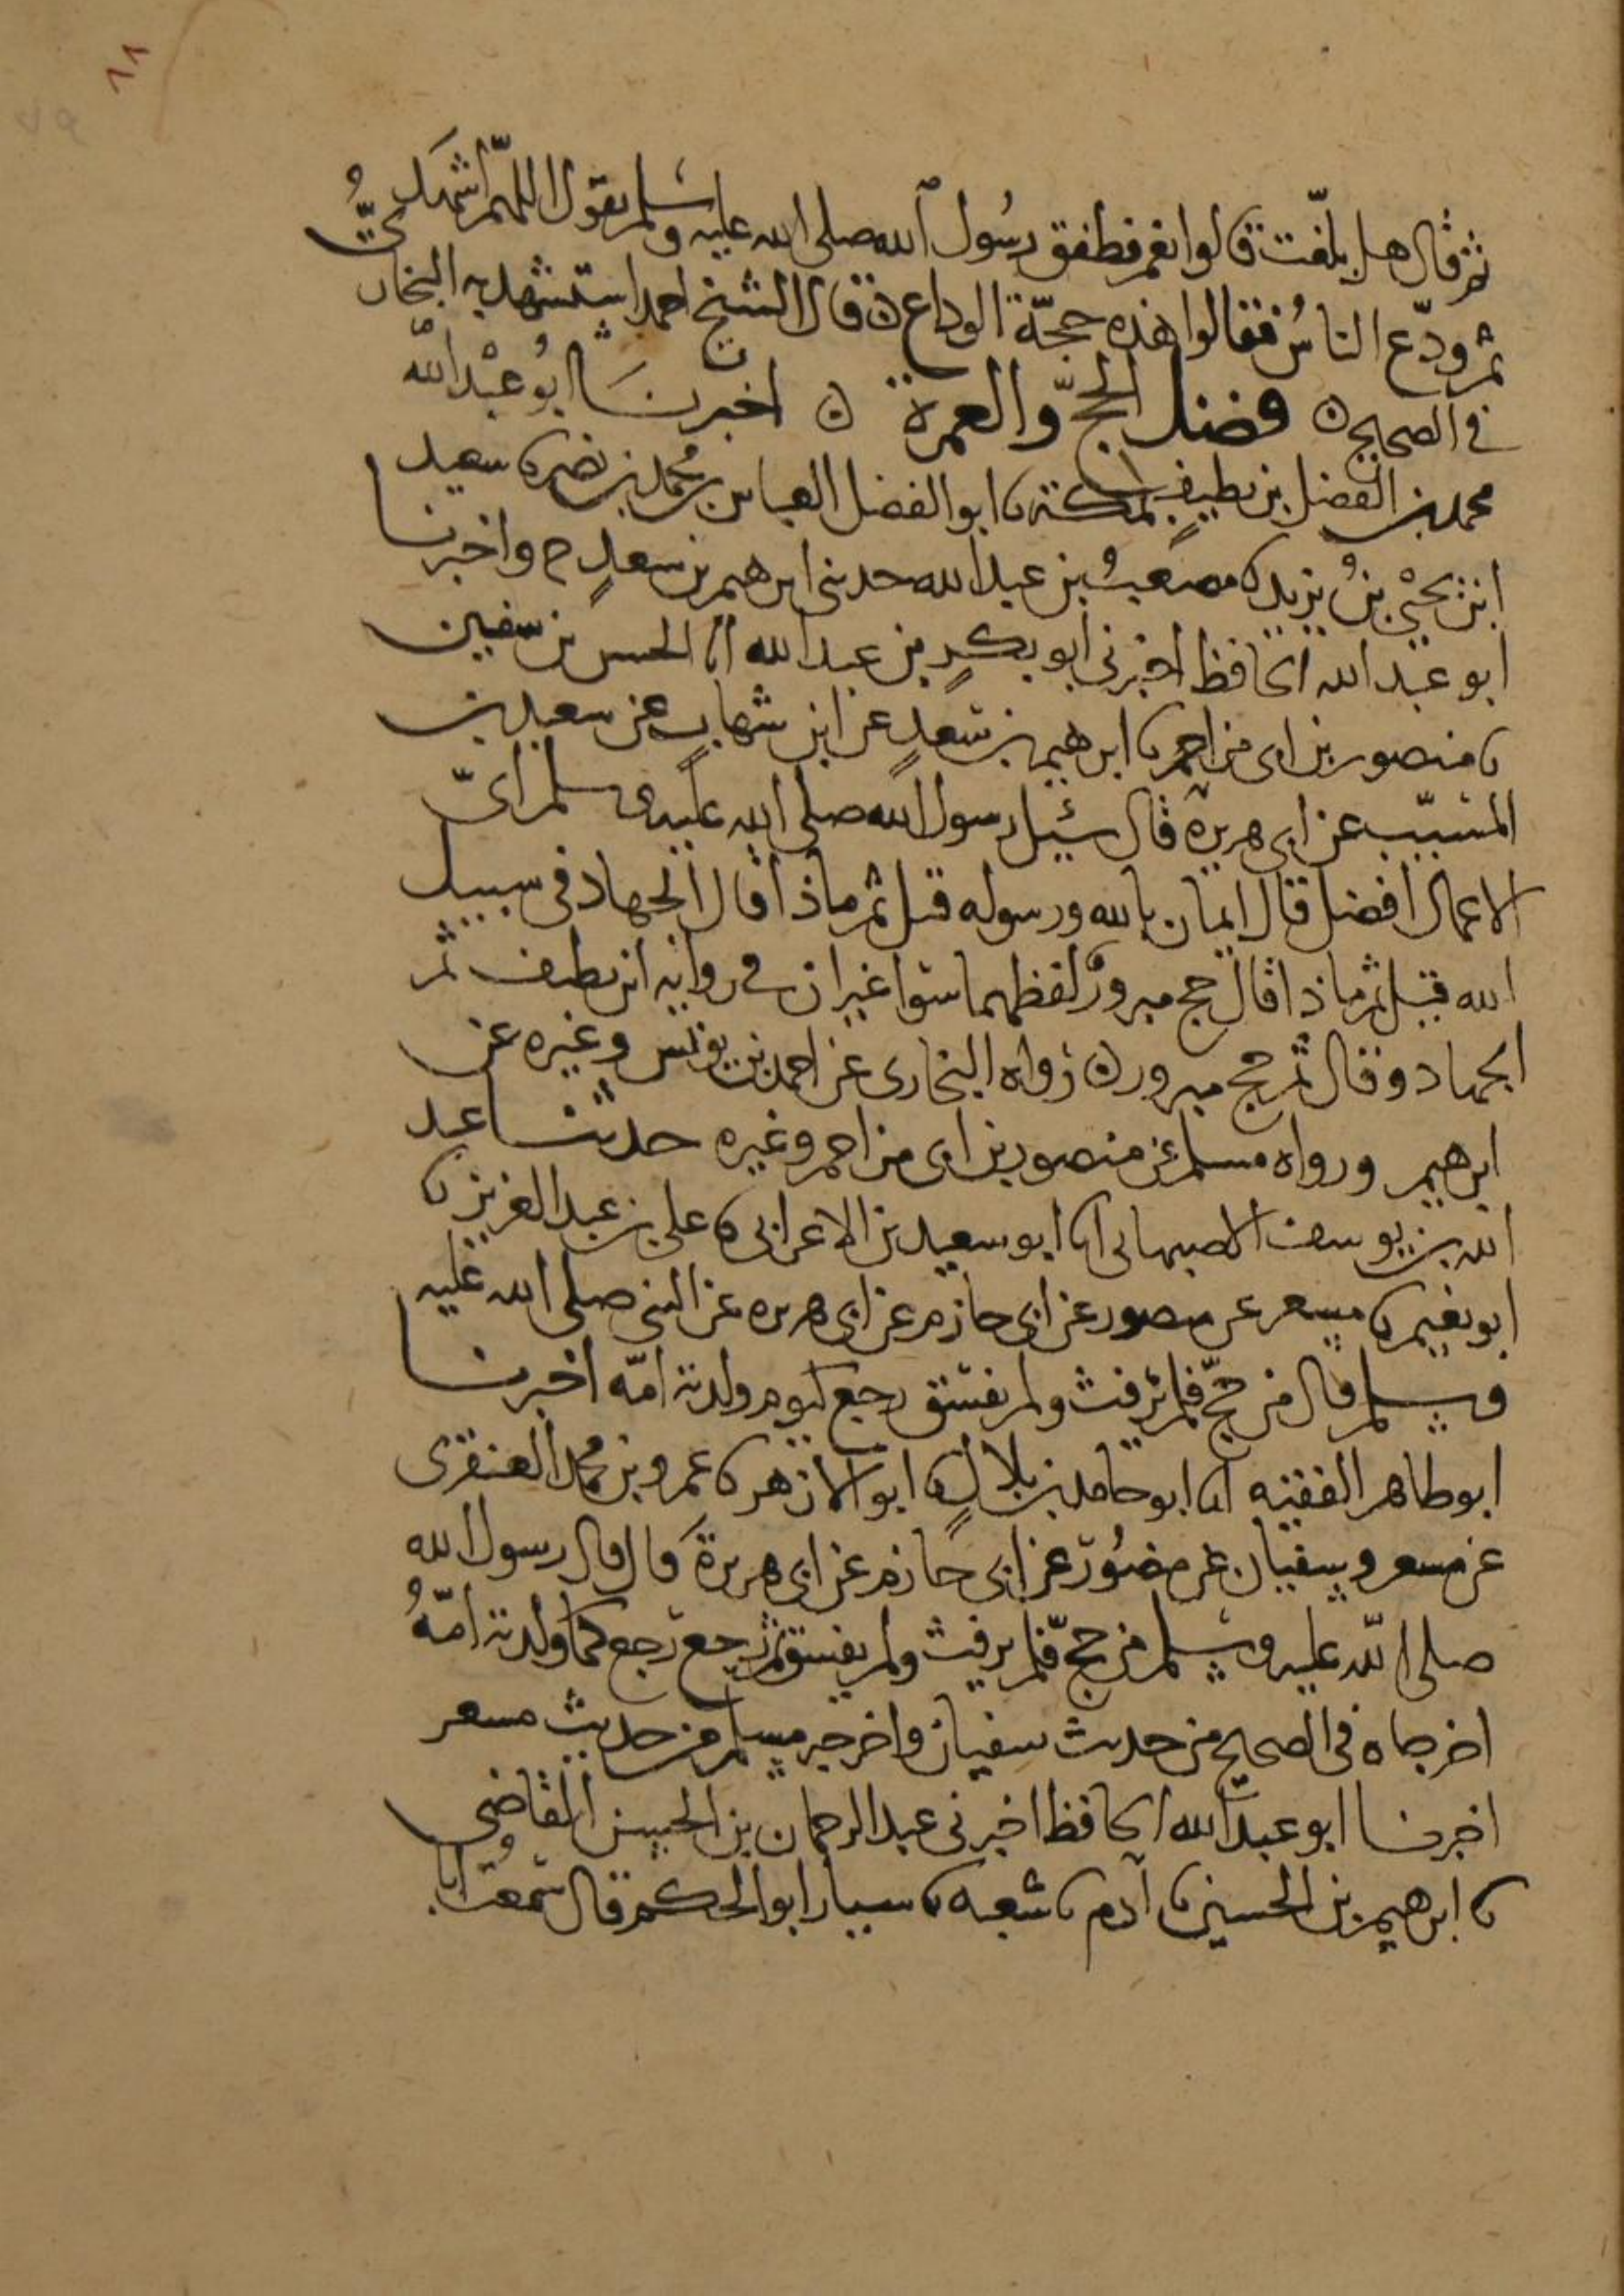 ١١
ثم قال هل بلغت قالوا نعم فطفق رسول الله صلى الله عليه وسلم يقول اللهم اشهد
ثم ودّع الناسُ فقالوا هذه حجّة الوداع ه قال الشيخ احمد استشهد به البخاري
في الصحيح ه فضل الحجّ والعمرة ه اخبرنا ابو عبد الله
محمد بن الفضل بن نظيف بمكة نا ابو الفضل العباس بن محمد بن نصر نا سعيد
ابن يحيى بنُ يزيد نا مصعبُ بن عبد الله حدثني ابرهيم بن سعدٍ ح واخبرنا
ابو عبد الله الحافظ اخبرني ابو بكرٍ بن عبد الله انا الحسن بن سفين
نا منصور بن ابي مزاحم نا ابرهيم بن سعدٍ عن ابن شهابٍ عن سعيد بن
المسيّب عن ابي هريرة قال سئيل رسول الله صلى الله عليه وسلم ايّ
الاعمال افضل قال ايمان بالله ورسوله قيل ثم ماذا قال الجهاد في سبيل
الله قيل ثم ماذا قال حج مبرورٌ لفظهما سوا غير ان في روايه ابن نظيف ثم
الجهاد وقال ثم حج مبرور ه رواه البخاري عن احمد بن يونس وغيره عن
ابرهيم ورواه مسلم عن منصور بن ابي مزاحم وغيره حدثنا عبد
الله بن يوسف الاصبهاني انا ابو سعيد بن الاعرابي نا علي بن عبد العزيز نا
ابو نعيم نا مسعر عن منصور عن ابي حازم عن ابي هريره عن النبي صلى الله عليه
وسلم قال من حجّ فلم يرفث ولم يفسق رجع كيوم ولدته امّه اخبرنا
ابو طاهر الفقيه انا ابو حامد بن بلالٍ نا ابو الازهر نا عمرو بن محمد العنقزي
عن مسعر وسفيان عن منصُور عن ابي حازم عن ابي هريرة قال قال رسول الله
صلى الله عليه وسلم من حجّ فلم يرفث ولم يفسق ثم رجع رجع كما ولدته امّهُ
اخرجاه في الصحيح من حديث سفيان واخرجه مسلم من حديث مسعر
اخبرنا ابو عبد الله الحافظ اخبرني عبد الرحمان بن الحسن القاضي
نا ابرهيم بن الحسين نا آدم نا شعبه نا سيار ابو الحكم قال سمعت ابا